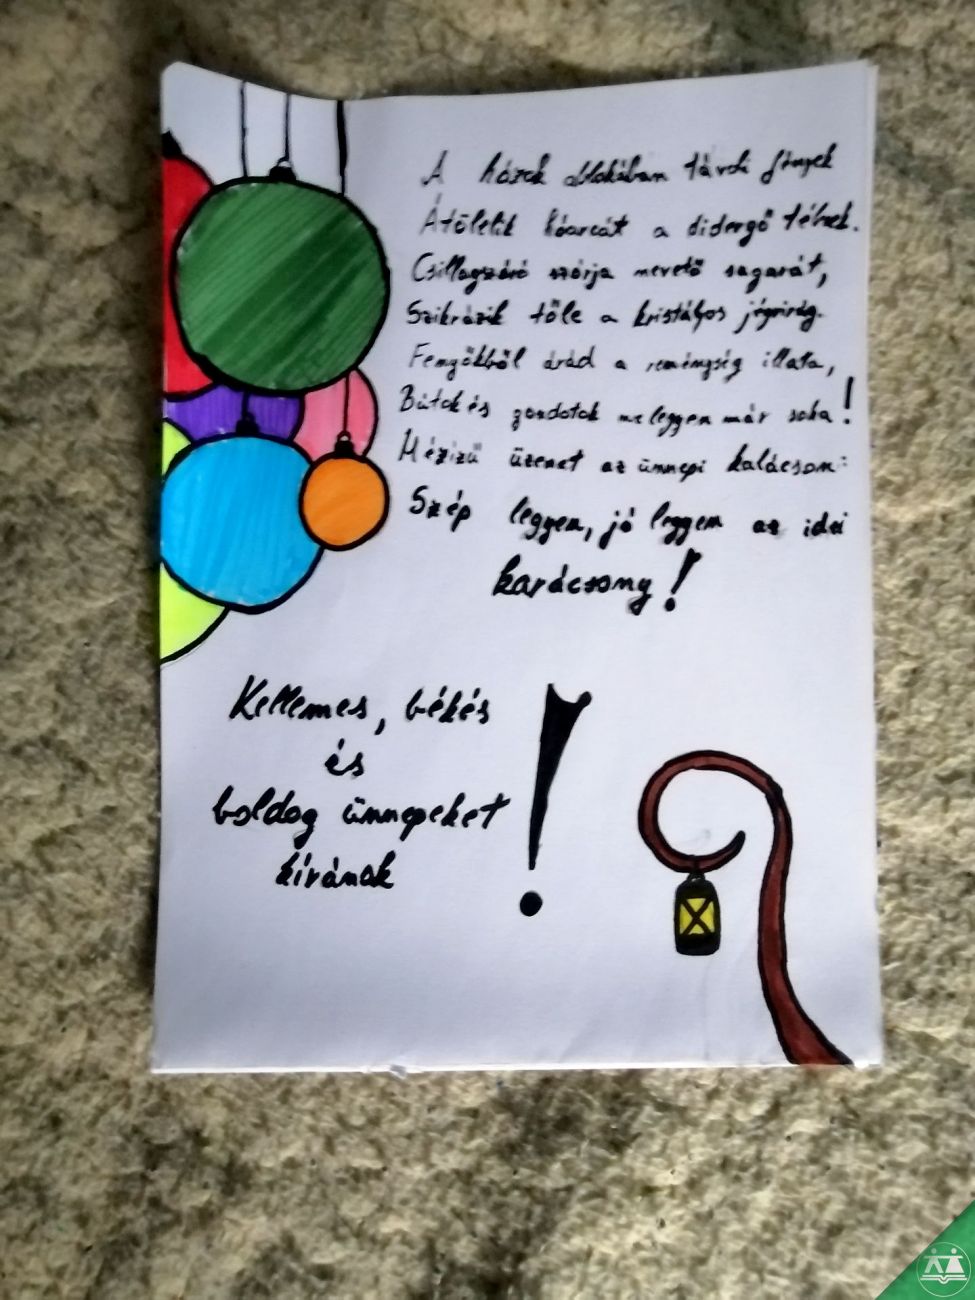 A házak ablakában távoli fények
Átölelik hóarcát a didergő télnek.
Csillagszóró szórja nevető sugarát,
Szikrázik tőle a kristályos jégvirág.
Fenyőkből árad a reménység illata,
Bútok és gondotok ne legyen már soha!
Mézizű üzenet az ünnepi kalácson:
Szép legyen, jó legyen az idei
karácsony!
Kellemes, békés
és
boldog ünnepeket
kívánok!